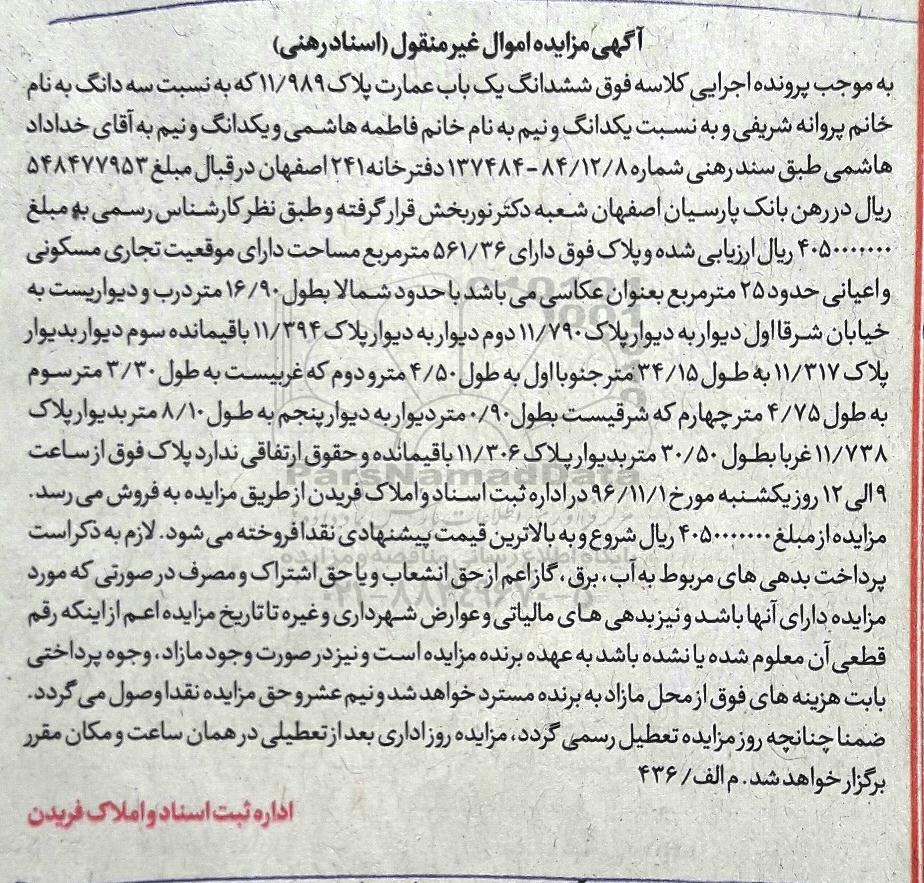 آگهی مزایده اموال غیر منقول (اسناد رهنی)
به موجب پرونده اجرایی کلاسه فوق ششدانگ یک باب عمارت پلاک ۱۱/۹۸۹ که به نسبت سه دانگ به نام
خانم پروانه شریفی و به نسبت یکدانگ و نیم به نام خانم فاطمه هاشمی و یکدانگ و نیم به آقای خداداد
هاشمی طبق سند رهنی شماره ۸۴/۱۲/۸ - ۱۳۷۴۸۴ دفترخانه ۲۴۱ اصفهان در قبال مبلغ ۵۴۸۴۷۷۹۵۳
ریال در رهن بانک پارسیان اصفهان شعبه دکتر نوربخش قرار گرفته و طبق نظر کارشناس رسمی به مبلغ
۴۰۵۰۰۰۰۰۰۰ ریال ارزیابی شده و پلاک فوق دارای ۵۶۱/۳۶ مترمربع مساحت دارای موقعیت تجاری مسکونی
و اعیانی حدود ۲۵ مترمربع بعنوان عکاسی می باشد با حدود شمالا بطول ۱۶/۹۰ متر درب و دیواریست به
خیابان شرقا اول دیوار به دیوار پلاک ۱۱/۷۹۰ دوم دیوار به دیوار پلاک ۱۱/۳۹۴ باقیمانده سوم دیوار بدیوار
پلاک ۱۱/۳۱۷ به طول ۳۴/۱۵ متر جنوبا اول به طول ۴/۵۰ متر و دوم که غربیست به طول ۳/۳۰ متر سوم
به طول ۴/۷۵ متر چهارم که شرقیست بطول ۰/۹۰ متر دیوار به دیوار پنجم به طول ۸/۱۰ متر بدیوار پلاک
۱۱/۷۳۸ غربا بطول ۳۰/۵۰ متر بدیوار پلاک ۱۱/۳۰۶ باقیمانده و حقوق ارتفاقی ندارد پلاک فوق از ساعت
۹ الی ۱۲ روز یکشنبه مورخ ۹۶/۱۱/۱ در اداره ثبت اسناد و املاک فریدن از طریق مزایده به فروش می رسد.
مزایده از مبلغ ۴۰۵۰۰۰۰۰۰۰ ریال شروع و به بالاترین قیمت پیشنهادی نقدا فروخته می شود. لازم به ذکر است
پرداخت بدهی های مربوط به آب، برق، گاز اعم از حق انشعاب و یا حق اشتراک و مصرف در صورتی که مورد
مزایده دارای آنها باشد و نیز بدهی های مالیاتی و عوارض شهرداری و غیره تا تاریخ مزایده اعم از اینکه رقم
قطعی آن معلوم شده یا نشده باشد به عهده برنده مزایده است و نیز در صورت وجود مازاد، وجوه پرداختی
بابت هزینه های فوق از محل مازاد به برنده مسترد خواهد شد و نیم عشر و حق مزایده نقدا وصول می گردد.
ضمنا چنانچه روز مزایده تعطیل رسمی گردد، مزایده روز اداری بعد از تعطیلی در همان ساعت و مکان مقرر
برگزار خواهد شد. م الف/ ۴۳۶
اداره ثبت اسناد و املاک فریدن
ParsNamadData